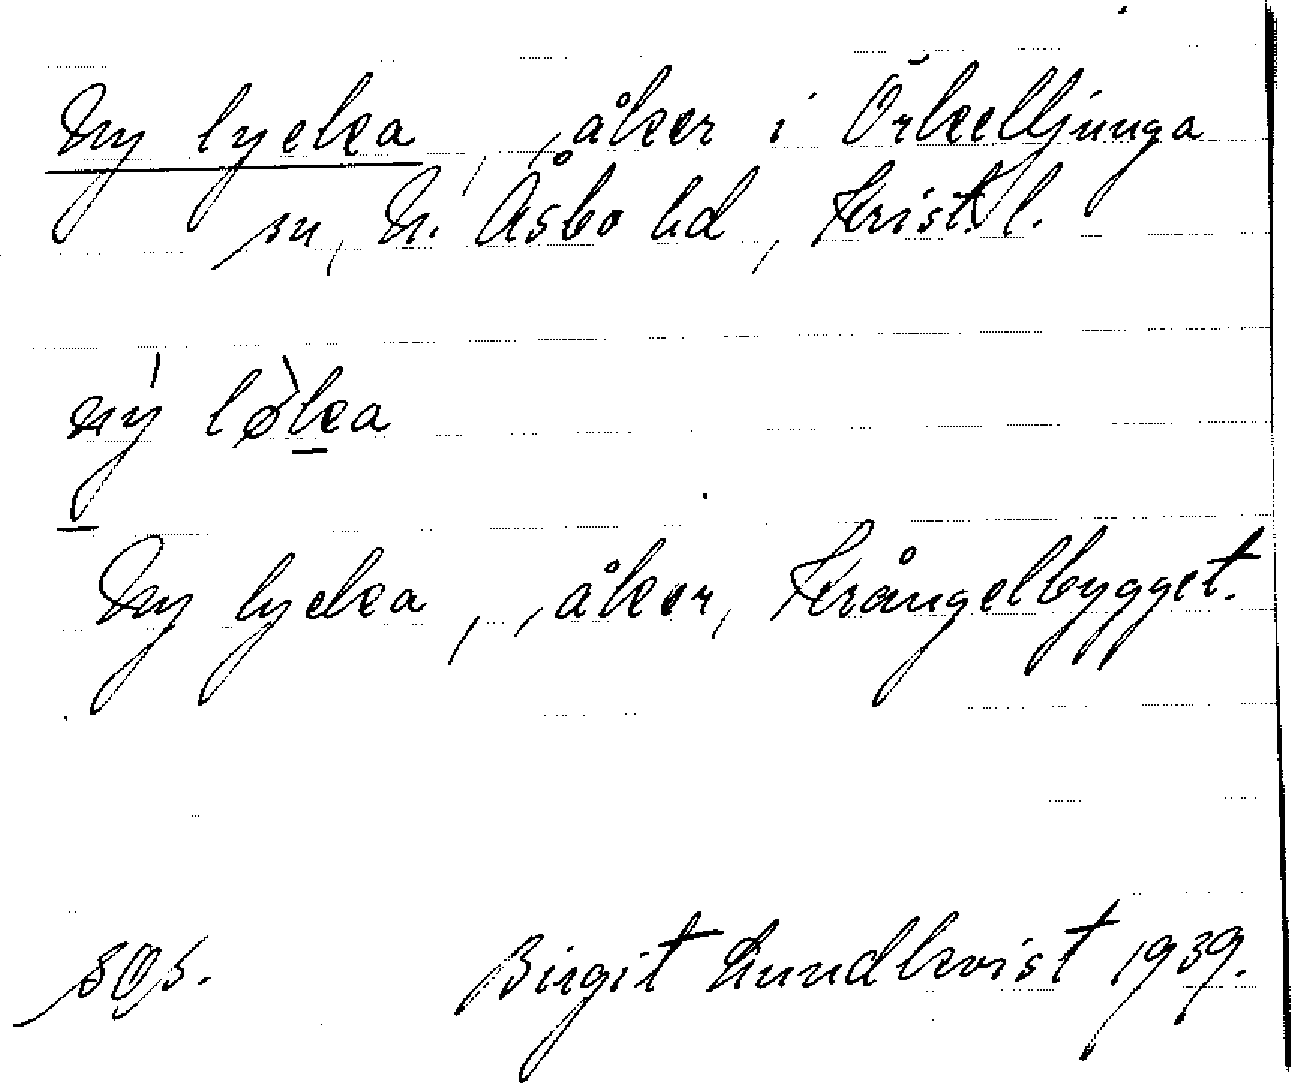 Ny lycka, ,åker i Örkelljunga
sn, N. Åsbo hd, Krist. l.
ný lø̀ka
Ny lycka, ,åker, Krångelbygget.
Birgit Lundkvist 1939.